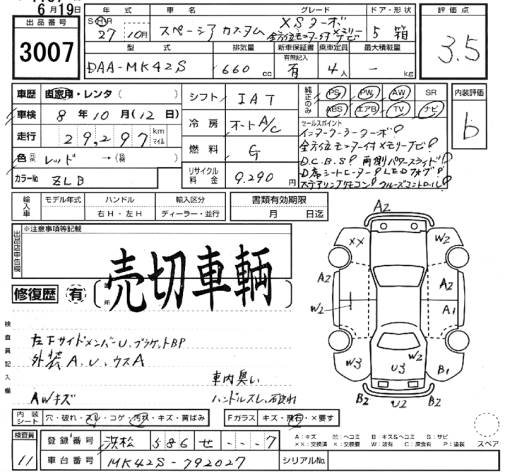 6月19日
出品番号
3007
年式 車名 グレード ドア・形状
27年10月 スペーシア カスタム XSターボ 5 箱
全方位モニター付メモリーナビ
評価点
3.5
型式 排気量 新車保証書 乗車定員 最大積載量
DAA-MK42S 660cc 有 4人 - kg
車歴 自家用・レンタ
車検 8年10月(12日)
走行 29,297 km マイル
色 レッド
カラーNo ZLB
シフト IAT
冷房 オートA/C
燃料 G
リサイクル料金 9,290円
純正のみ PS PW AW SR
ABS エアB TV ナビ
内装評価
b
セールスポイント
インタークーラーターボ!
全方位モニター付メモリーナビ!
D.C.B.S! 両側パワースライド!
D席シートヒーター! LEDフォグ!
ステアリングリモコン! クルーズコントロール!
輸入車 モデル年式 ハンドル 輸入区分
右H・左H ディーラー・並行
書類有効期限
月 日迄
※注意事項等記載
修復歴 有
売切車輌
検査員記入欄
左下サイドメンバーU、ブラケットBP
外装A、U、ウスA
車内臭い
AWキズ ハンドルスレ
A2
XX W2
A2 A2
W2 A1
W3 W2 B1
B2 U3 B2
U2
内装シート 穴・破れ・スレ・コゲ・汚れ・キズ・黄ばみ
Fガラス キズ・飛石・×要す
検査員 11
登録番号 浜松 586 せ ---7
車台番号 MK42S-792027
シリアルNo.
A:キズ U:ヘコミ B:キズ&ヘコミ S:サビ
スペア